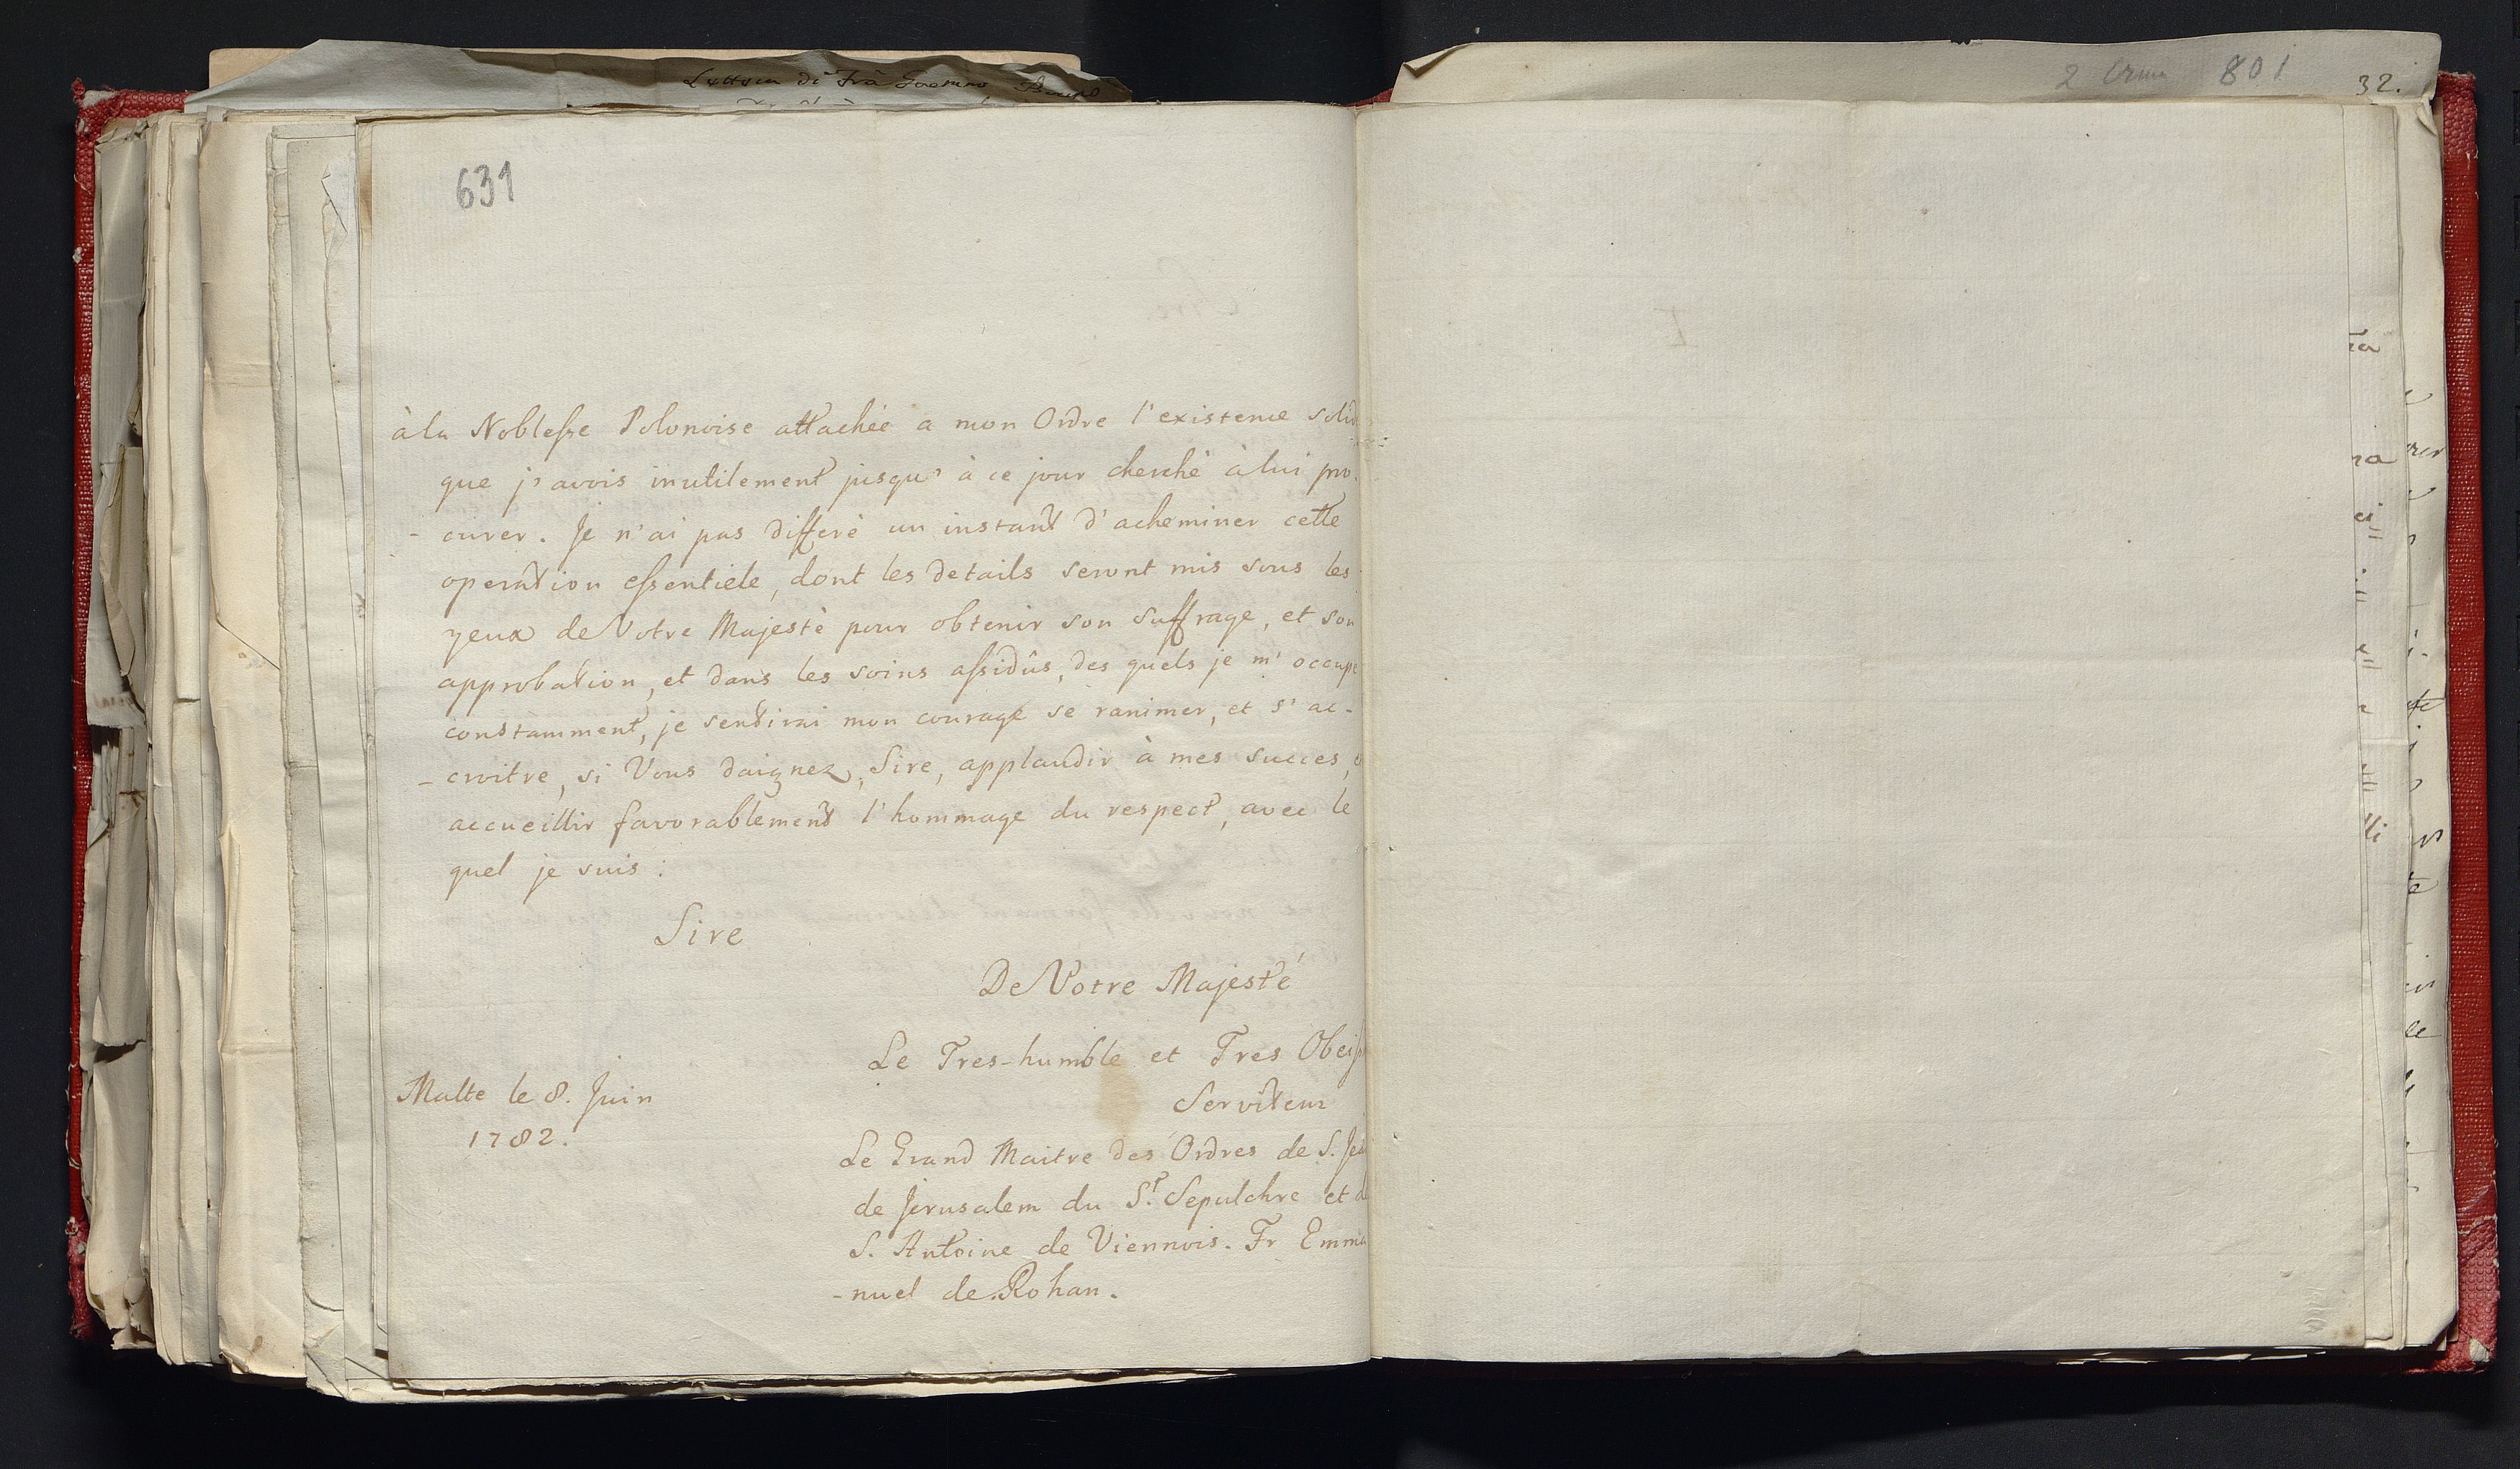 32.
801
631
à la Noblesse Polonoise attachée a mon Ordre l'existence
que j'avois inutilement jusqu'à ce jour cherché à lui pro
- curer. Je n'ai pas differé un instant d'acheminer cette
operation essentiele, dont les details seront mis sous les
yeux de Votre Majesté pour obtenir son suffrage, et son
approbation, et dans les soins assidûs, des quels je m'occupe
constamment, je sentirai mon courage se ranimer, et s'ac-
- croitre, si Vous daignez, Sire, applaudir à mes succes,
accueillir favorablement l'hommage du respect, avec le
quel je suis :
Sire
De Votre Majesté
Le Tres-humble et Tres
Serviteur
Malte le 8. Juin
1782.
Le Grand Maitre des Ordres de S.
de Jerusalem du St. Sepulchre et
S. Antoine de Viennois. Fr Emma
-nuel de Rohan.